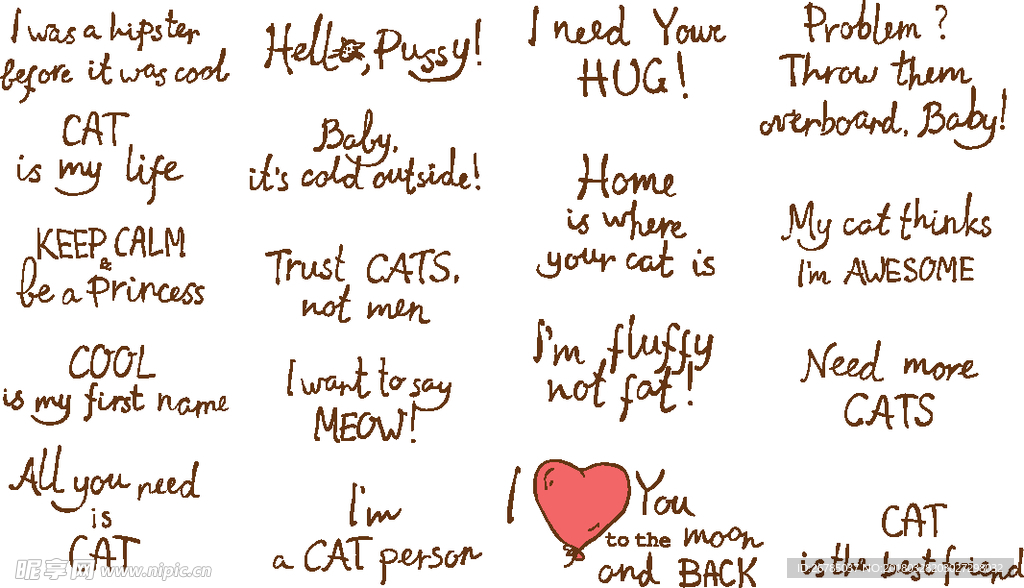 I was a hipster
before it was cool
CAT
is my life
KEEP CALM
&
be a Princess
COOL
is my first name
All you need
is
CAT
Hello, Pussy!
Baby,
it's cold outside!
Trust CATS,
not men
I want to say
MEOW!
I'm
a CAT person
I need Your
HUG!
Home
is where
your cat is
I'm fluffy
not fat!
I You
to the moon
and BACK
Problem ?
Throw them
overboard, Baby!
My cat thinks
I'm AWESOME
Need more
CATS
CAT
is the best friend
昵享网 www.nipic.cn